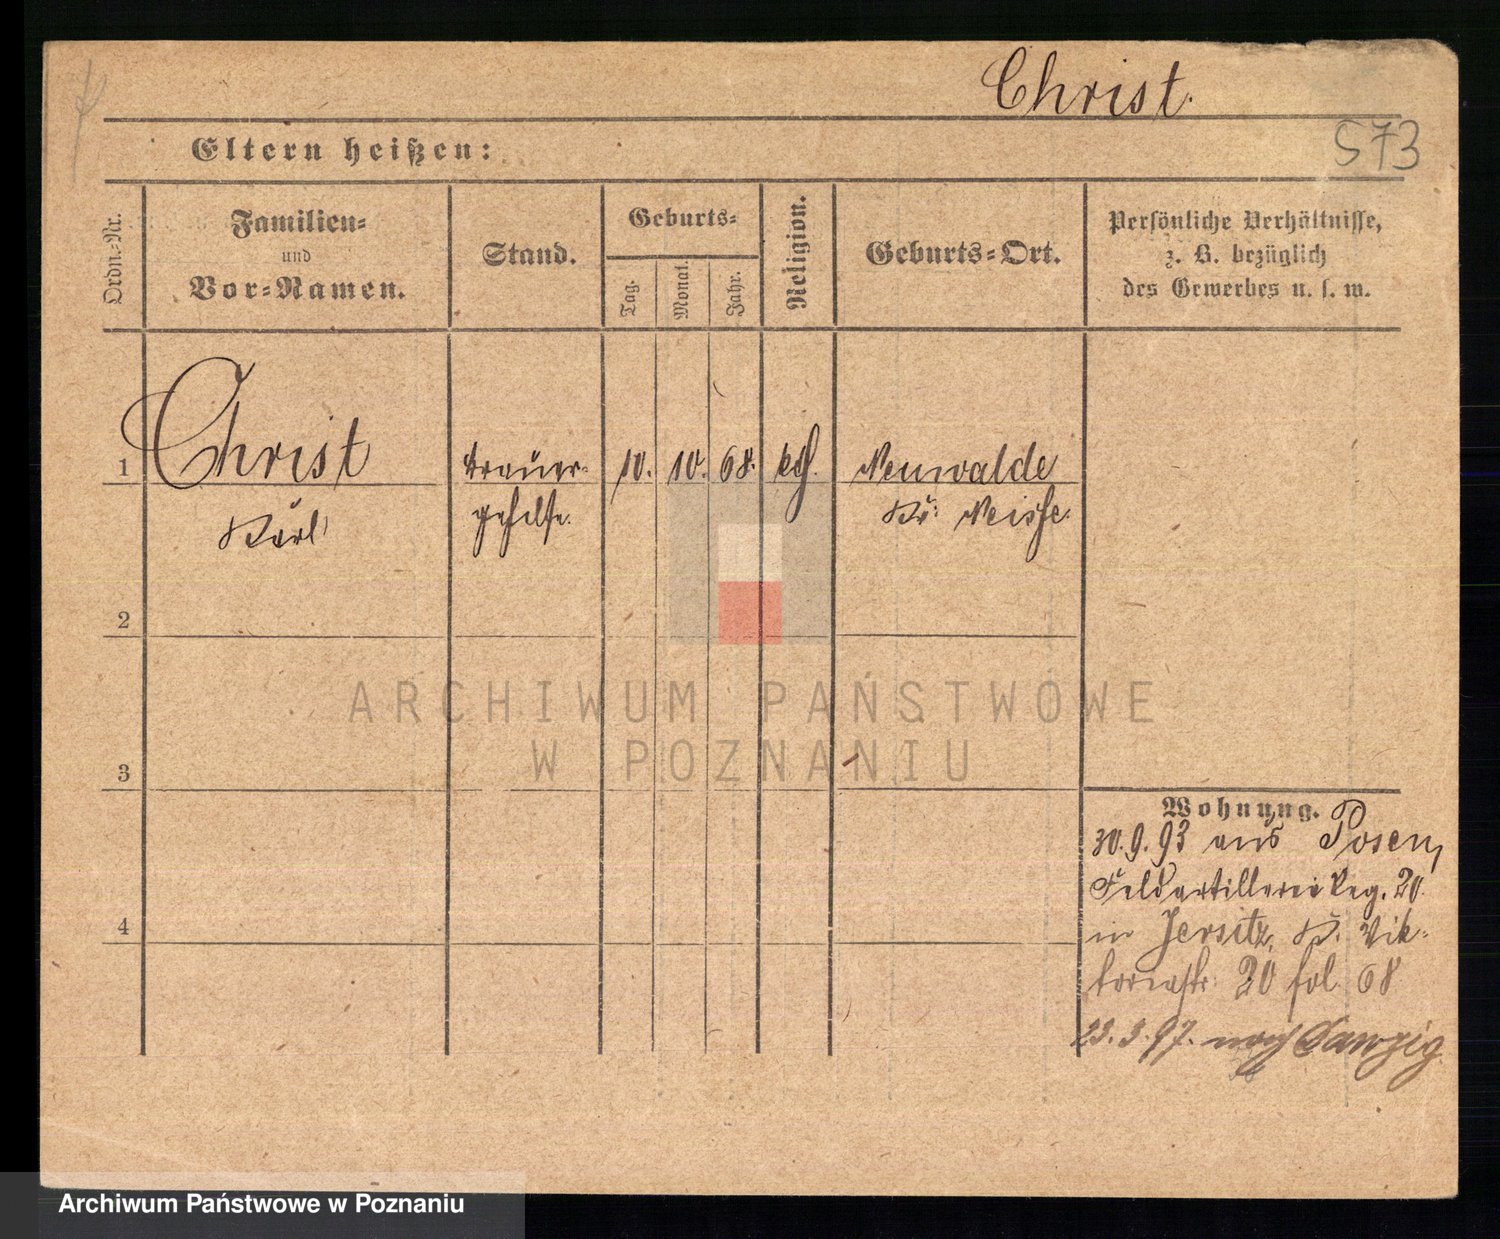 Christ.
573
Eltern heißen:
Ordn.-Nr.
Familien-
und
Vor-Namen.
Stand.
Geburts-
Tag.
Monat.
Jahr.
Religion.
Geburts-Ort.
Persönliche Verhältnisse,
z. B. bezüglich
des Gewerbes u. s. w.
1 Christ Brauer- 10. 10. 68. kth. Neuwalde
Karl gehilfe. Kr: Neisse.
2
ARCHIWUM PAŃSTWOWE
W POZNANIU
3
Wohnung.
30.9.93 aus Posen,
Feldartillerie Reg. 20.
4
in Jersitz, Vik-
toriastr. 20 fol. 68
23.3.97. nach Danzig
Archiwum Państwowe w Poznaniu